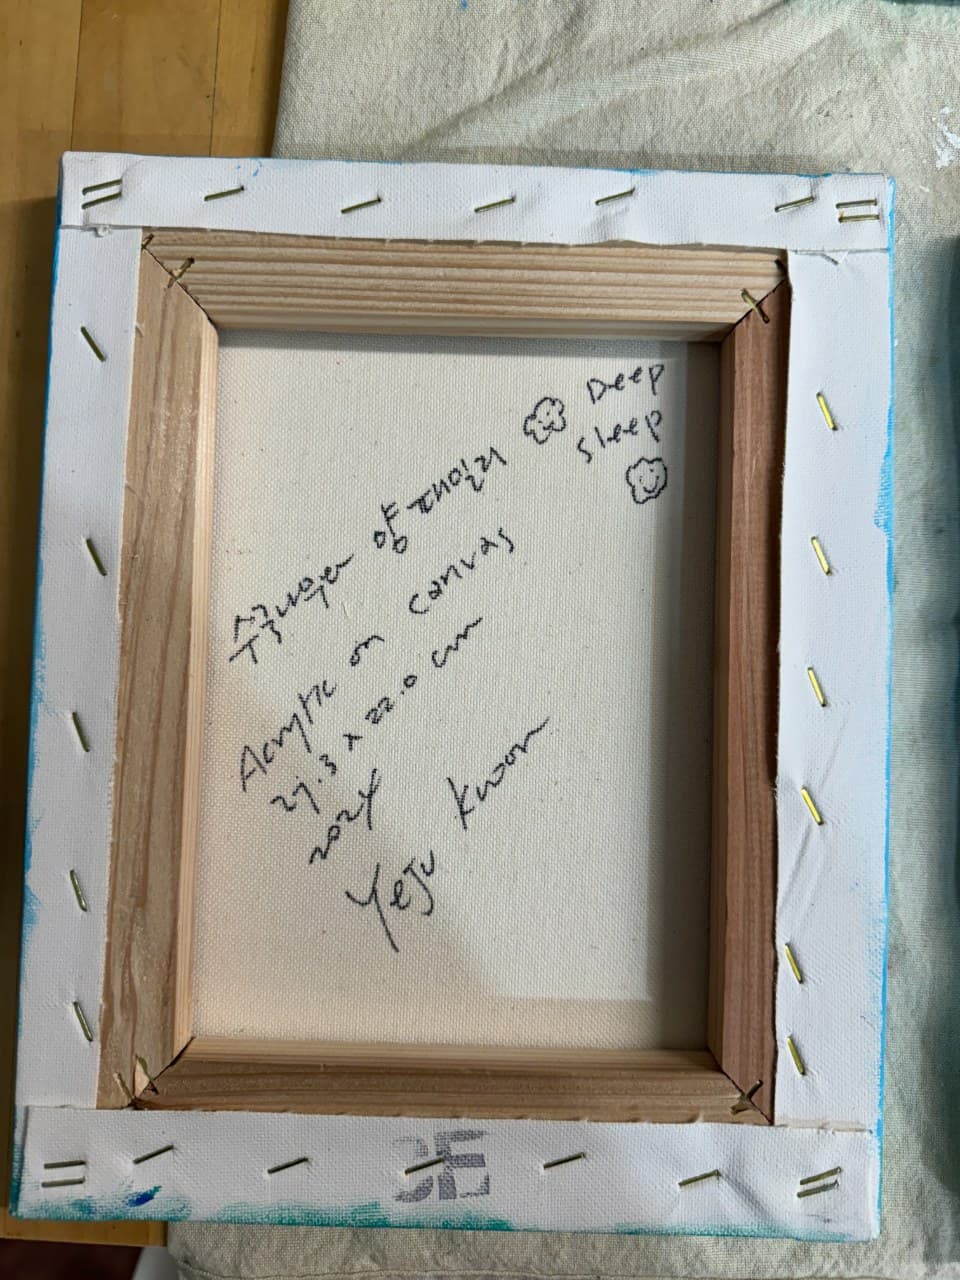 양 패밀리 Deep
sleep
Acrylic on canvas
27.3 x 22.0 cm
2024
Yeju Kwon